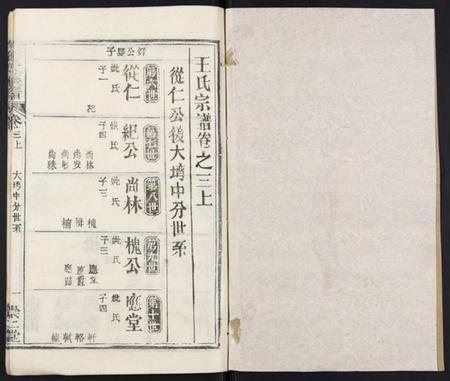 王氏宗譜卷之三上
從仁公後大塆中分世系
公長子
第六世
從仁
妣氏
子一
第七世
紀公
妣氏
子四
尚林
尚安
尚彬
第八世
尚林
妣氏
子三
槐
楫
第九世
槐公
妣氏
子三
應堂
第十世
應堂
妣氏
子四
軒
輅
軾
卷三上
大塆中分世系
一